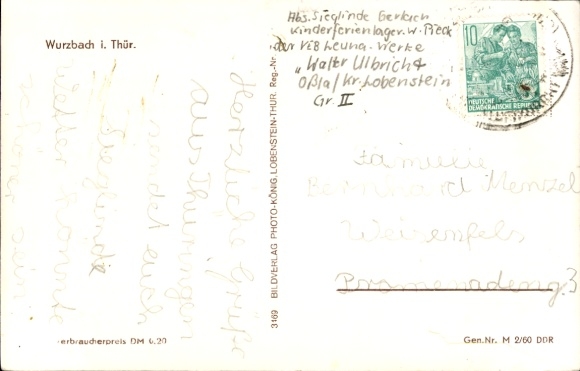 Wurzbach i. Thür.
Abs. Sieglinde Gerlach
Kinderferienlager W. Pieck
der VEB Leuna-Werke
„Walter Ulbricht
Oßla/Kr. Lobenstein
Gr. II
10
DEUTSCHE
DEMOKRATISCHE REPUBLIK
Herzliche Grüße
aus Thüringen
sendet euch
Sieglinde
Wetter könnte
schöner sein
3169 BILDVERLAG PHOTO-KÖNIG, LOBENSTEIN-THÜR. Reg.-Nr
Familie
Bernhard Menzel
Weisenfels
Promenadeng. 3
erbraucherpreis DM 0.20
Gen.Nr. M 2/60 DDR